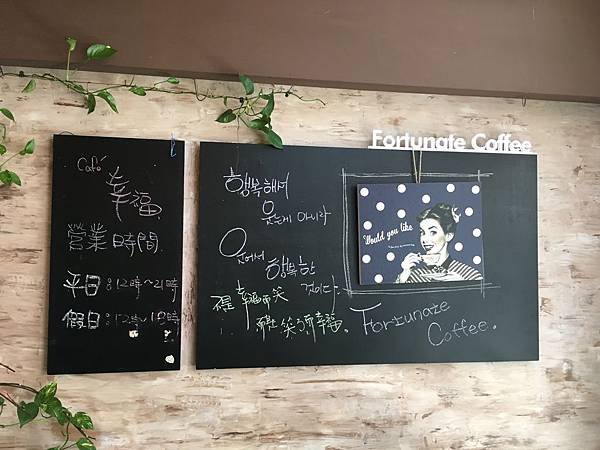 Café
幸福
營業時間
平日：12時~21時
假日：12時~19時
Fortunate Coffee
행복해서
웃는게 아니라
웃어서
행복한
것이다.
幸福而笑
而是笑了而幸福。
Would you like
Fortunate
Coffee.